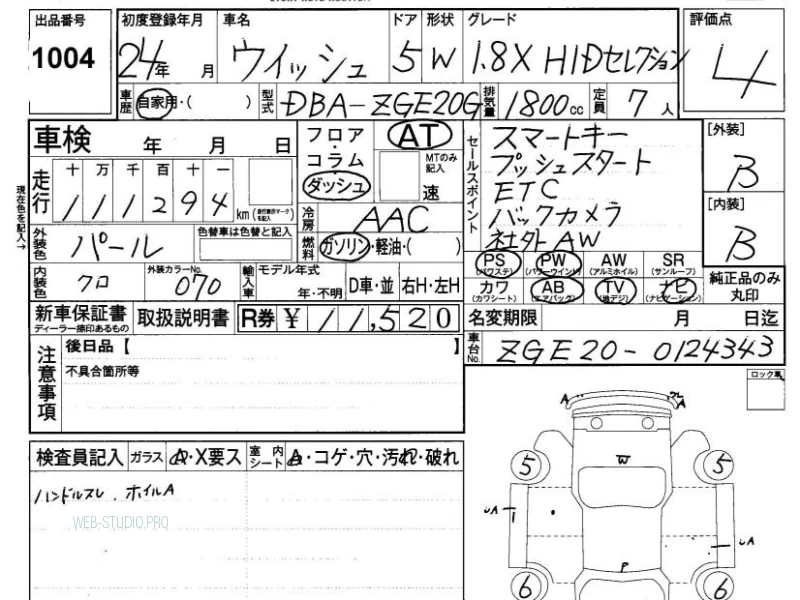 出品番号
1004
初度登録年月 車名 ドア 形状 グレード
24年 月 ウイッシュ 5 W 1.8X HIDセレクション
評価点
4
車歴 自家用・( ) 型式 DBA-ZGE20G 排気量 1800cc 定員 7人
車検 年 月 日
フロア・コラム・ダッシュ
AT
MTのみ記入
速
セールスポイント
スマートキー
プッシュスタート
ETC
バックカメラ
社外AW
[外装]
B
[内装]
B
現在色を記入→
走行 十 万 千 百 十 一
111294 km
冷房 AAC
外装色 パール 色替車は色替と記入
燃料 ガソリン・軽油・( )
内装色 クロ 外装カラーNo. 070
輸入車 モデル年式 年・不明 D車・並 右H・左H
PS (パワステ) PW (パワーウインド) AW (アルミホイル) SR (サンルーフ)
カワ (カワシート) AB (エアバック) TV (地デジ) ナビ (ナビゲーション)
純正品のみ丸印
新車保証書 ディーラー捺印あるもの 取扱説明書 R券 ¥ 11,520
名変期限 月 日迄
車台No. ZGE20-0124343
注意事項
後日品【 】
不具合箇所等
ロック車
検査員記入 ガラス A・X要ス 室内シート A・コゲ・穴・汚れ・破れ
ハンドルスレ ホイルA
WEB-STUDIO.PRO
A A
W
5 5
A A
P
6 6